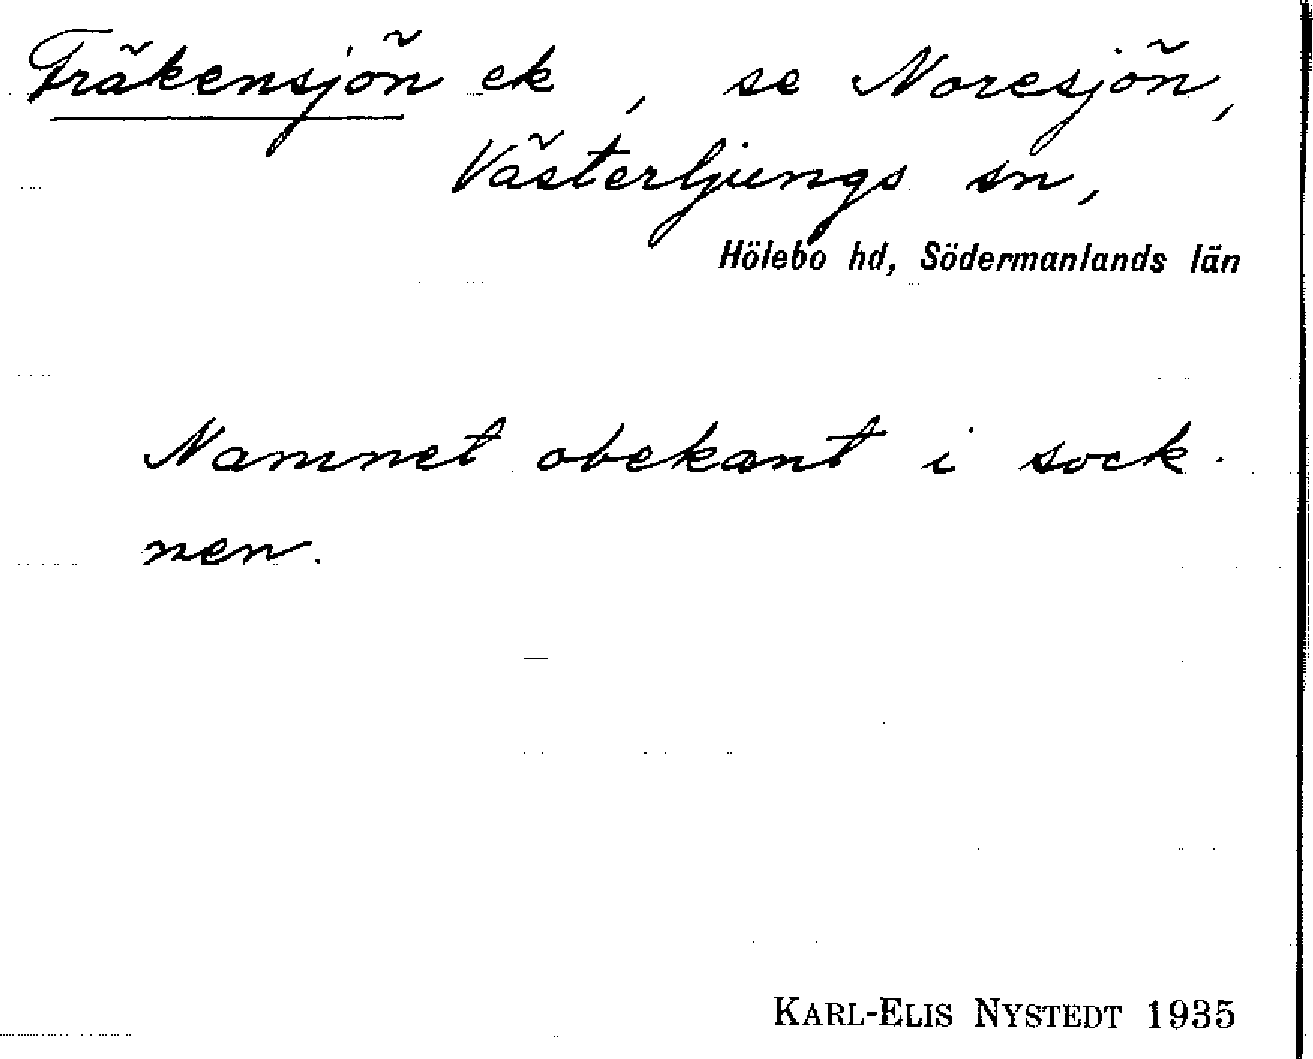 Fräkensjön ek, se Noresjön,
Västerljungs sn,
Hölebo hd, Södermanlands län
Namnet obekant i sock-
nen.
KARL-ELIS NYSTEDT 1935